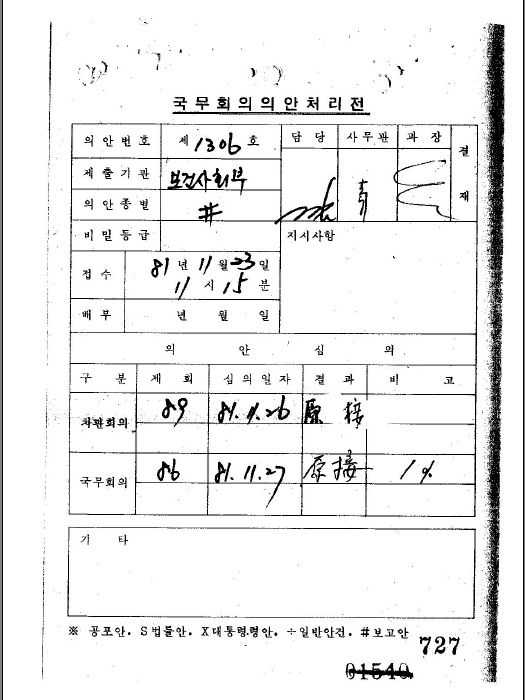 국무회의의안처리전
의안번호 제 1306 호 담당 사무관 과장 결재
제출기관 보건사회부
의안종별 #
비밀등급 지시사항
접수 81년 11월 23일
11시 15분
배부 년 월 일
의 안 심 의
구분 제 회 심의일자 결과 비고
차관회의 89 81.11.26 原接
국무회의 86 81.11.27 原接
기 타
※ 공포안. S법률안. X대통령령안. ÷일반안건. #보고안
727
01540